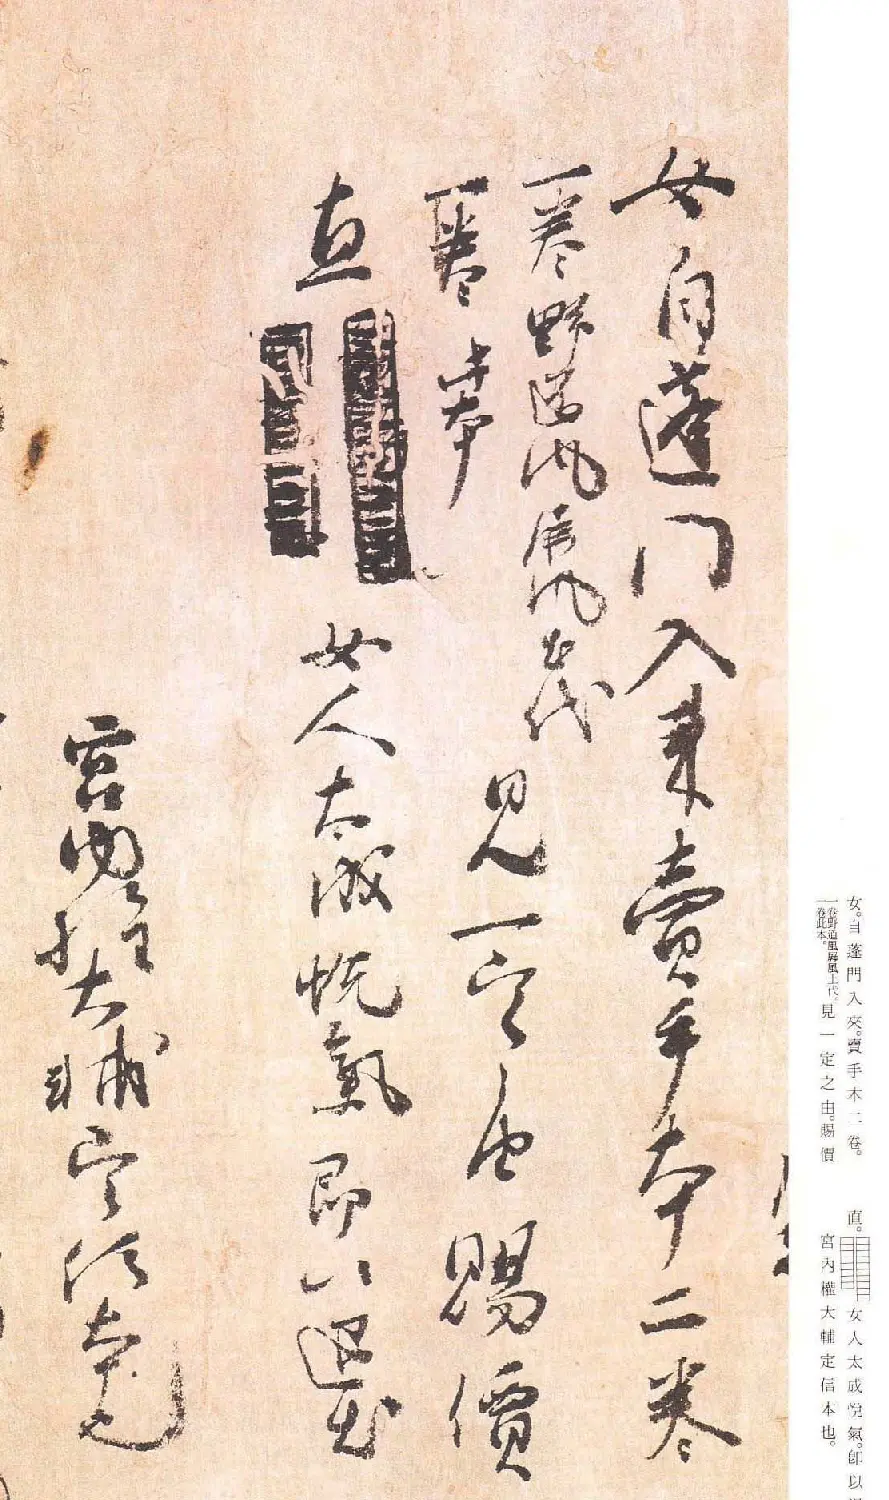 女。自蓬門入來。賣手木二卷。
一卷野道風屏風上代。
一卷此本。
見一定之由。賜價
直。
女人太成悅氣。卽以
宮內權大輔定信本也。
女自蓬門入来賣手本二卷
一卷野道風屏風土代
一卷此本
見一定之由賜價
直
女人太成悦氣即以退出
宮内権大輔定信本也